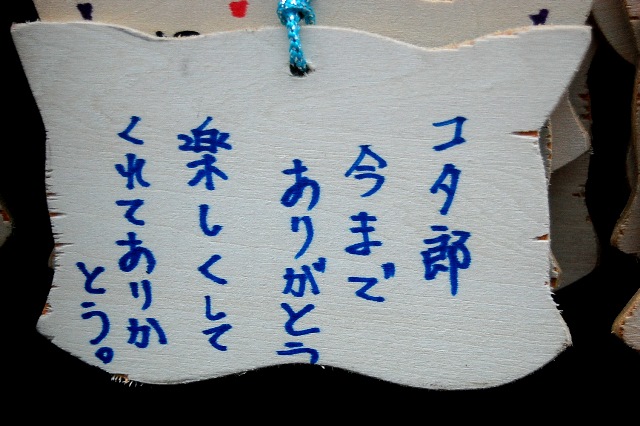 コタ郎
今まで
ありがとう
楽しくして
くれてありか
とう。